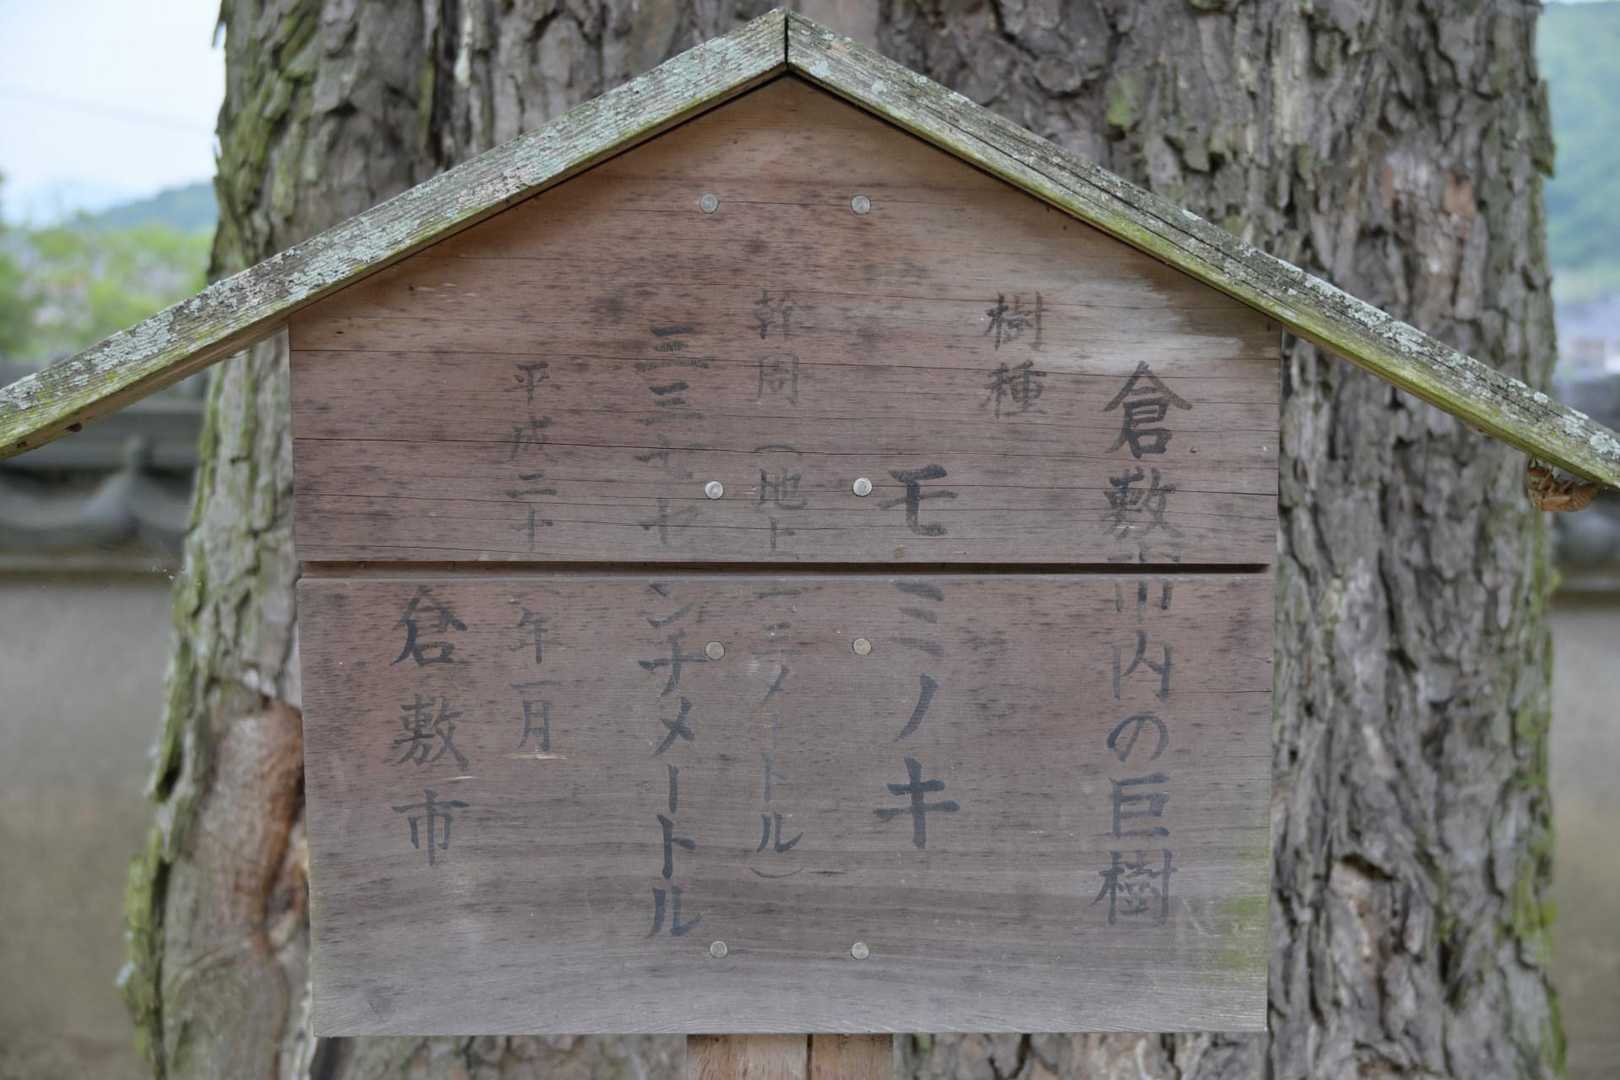 倉敷市内の巨樹
樹種
モミノキ
幹周（地上一三メートル）
三三七センチメートル
平成二十 年一月
倉敷市